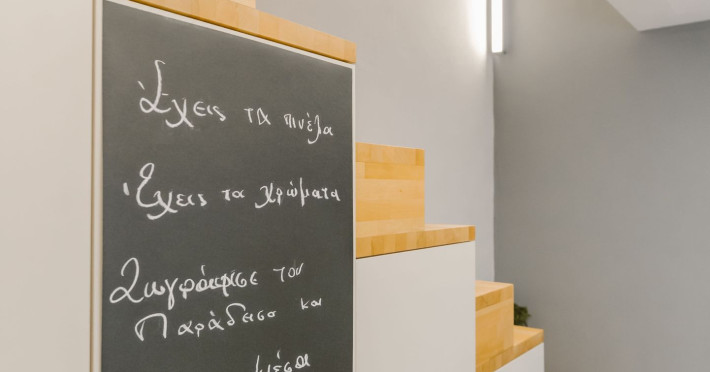 Έχεις τα πινέλα
Έχεις τα χρώματα
Ζωγράφισε τον
Παράδεισο και
μέσα